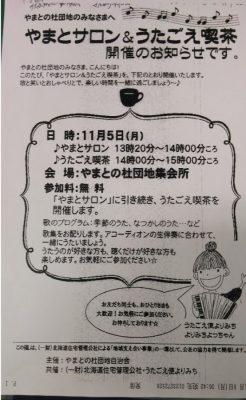 やまとの社団地のみなさまへ
やまとサロン&うたごえ喫茶
開催のお知らせです。
やまとの社団地のみなさま、こんにちは!
このたび、「やまとサロン&うたごえ喫茶」を、下記のとおり開催いたします。
歌と笑いとおしゃべりとで、楽しい時間を一緒に過ごしましょう〜♪
日 時:11月5日(月)
♪やまとサロン 13時20分〜14時00分ころ
♪うたごえ喫茶 14時00分〜15時00分ころ
会 場:やまとの社団地集会所
参加料:無 料
「やまとサロン」に引き続き、うたごえ喫茶を
開催します。
歌のプログラム:季節のうた、なつかしのうた…など
歌集をお配りします。アコーディオンの生伴奏に合わせて、
一緒にうたいましょう。
うたうのが好きな方も、聴くだけが好きな方も
楽しめます。お気軽にご参加ください☆
お友だち同士も、おひとりさまも
大歓迎!お気軽にご参加ください。
お待ちしております☆
うたごえ便よりみち
よりみちよっちゃん
この催しは、(一財)北海道住宅管理公社による「地域支え合い事業」の一環として、公社の協力を得て開催します。
主催:やまとの社団地自治会
共催:(一財)北海道住宅管理公社・うたごえ便よりみち